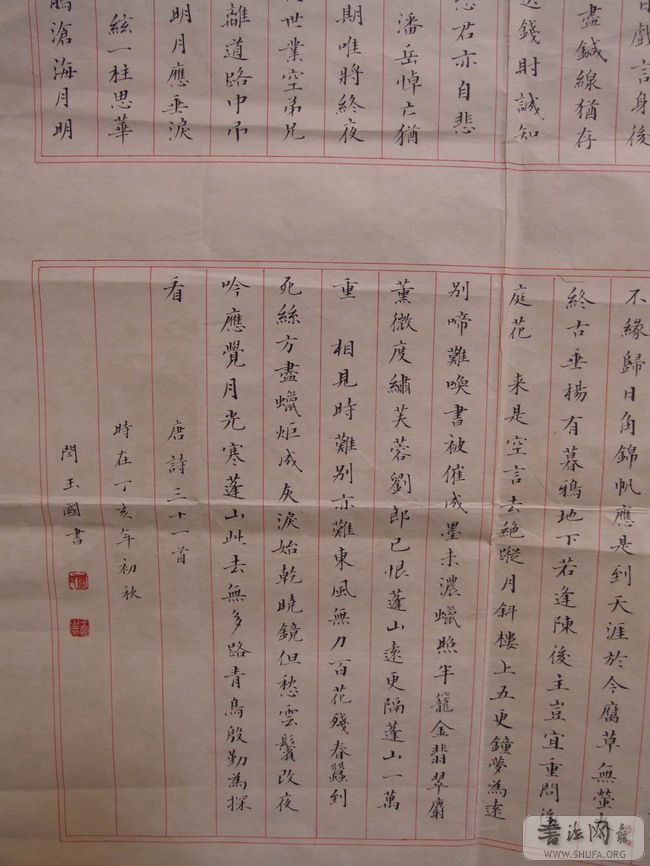 日戲言身後
盡鍼線猶存
錢財誠知
君亦自悲
潘岳悼亡猶
期唯將終夜
世業空弟兄
離道路中吊
明月應垂淚
絃一柱思華
滄海月明
不緣歸日角錦帆應是到天涯於今腐草無螢
終古垂楊有暮鴉地下若逢陳後主豈宜重問後
庭花 来是空言去絕蹤月斜樓上五更鐘夢為遠
別啼難喚書被催成墨未濃蠟照半籠金翡翠麝
薰微度繡芙蓉劉郎已恨蓬山遠更隔蓬山一萬
重 相見時難別亦難東風無力百花殘春蠶到
死絲方盡蠟炬成灰淚始乾曉鏡但愁雲鬢改夜
吟應覺月光寒蓬山此去無多路青鳥殷勤為探
看
唐詩三十一首
時在丁亥年初秋
閆玉國書
書法网
WWW.SHUFA.ORG